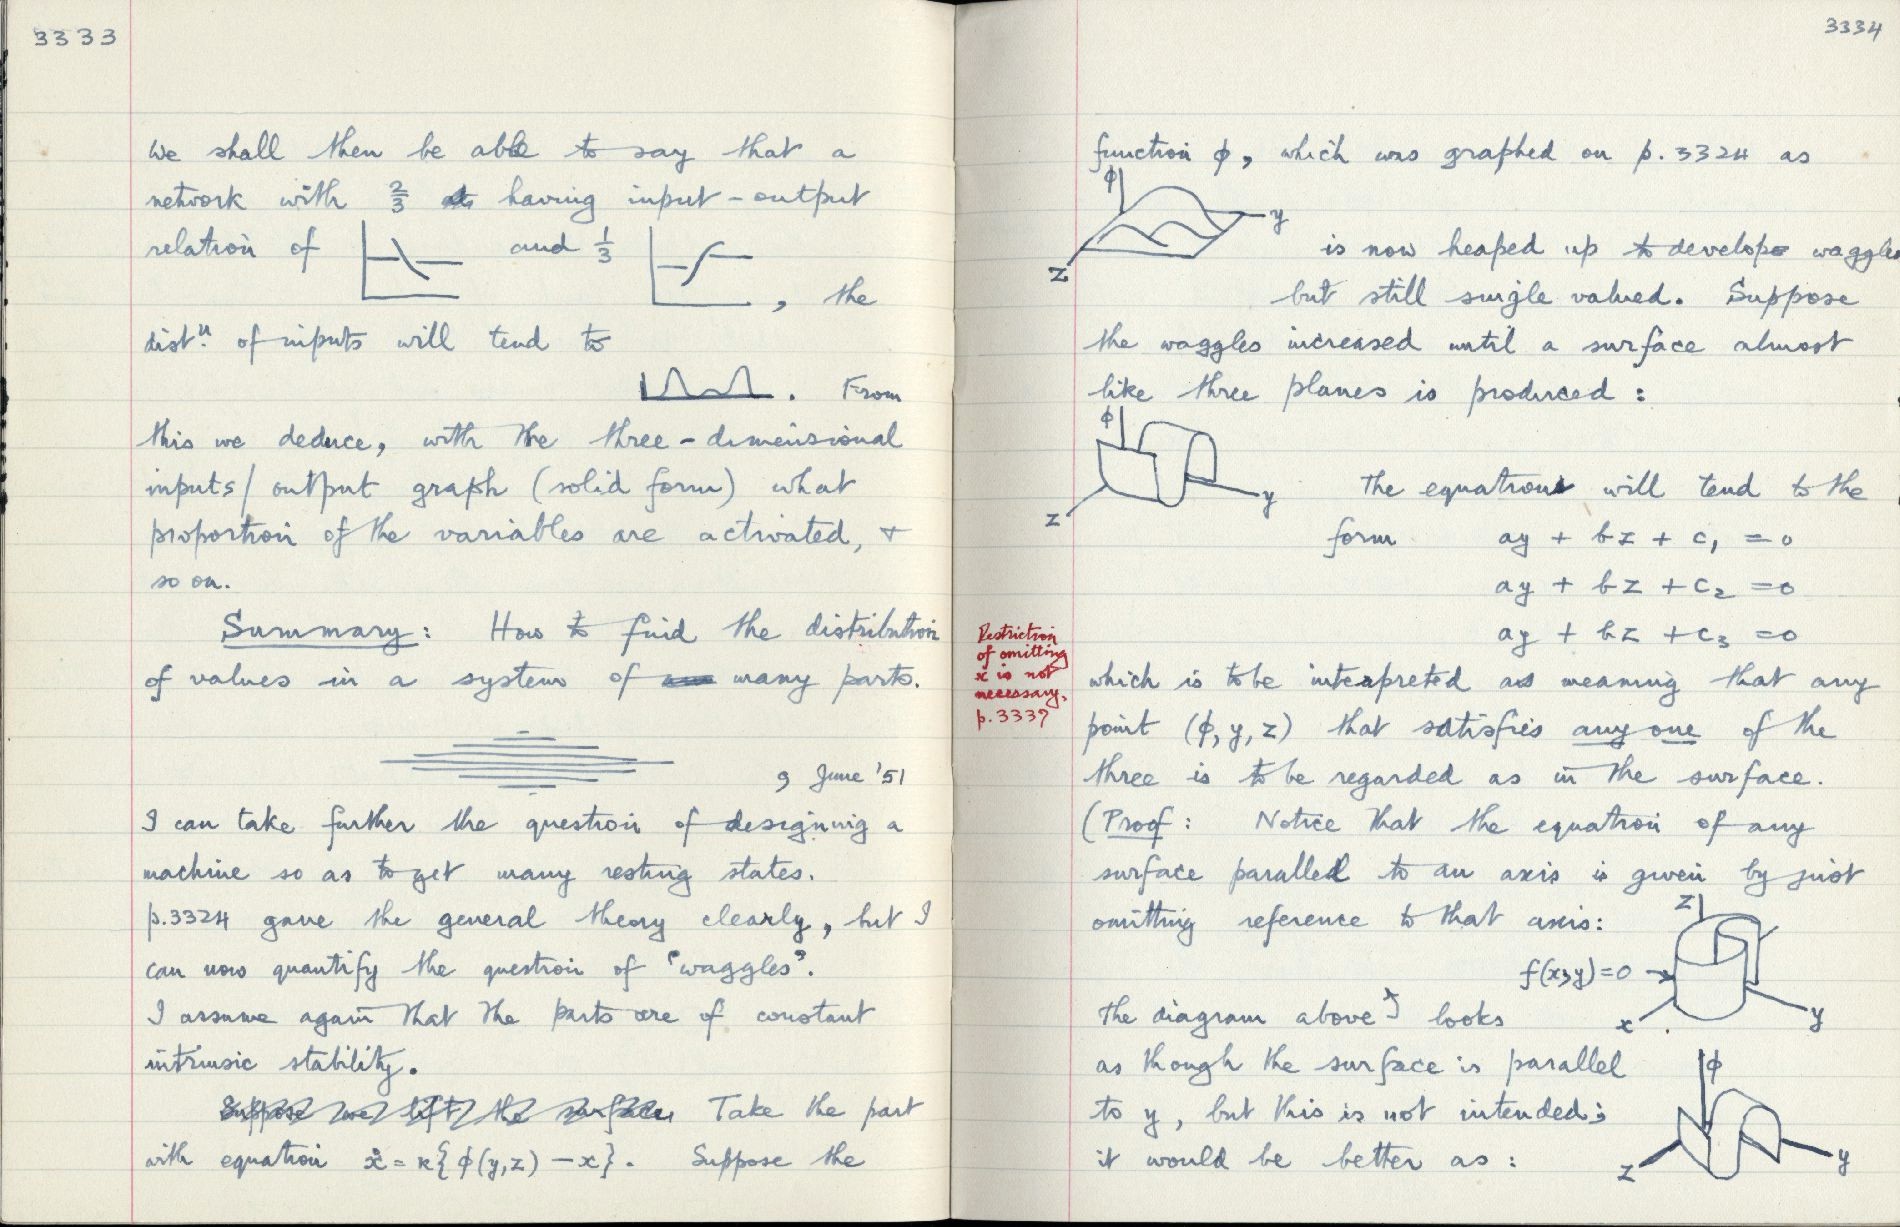 3333
We shall then be able to say that a
network with 2/3 having input - output
relation of and 1/3
, the
distn. of inputs will tend to
. From
this we deduce, with the three-dimensional
inputs/output graph (solid form) what
proportion of the variables are activated, +
so on.
Summary: How to find the distribution
of values in a system of many parts.
9 June '51
I can take further the question of designing a
machine so as to get many resting states.
p.3324 gave the general theory clearly, but I
can now quantify the question of 'waggles'.
I assume again that the parts are of constant
intrinsic stability.
Suppose we lift the surface Take the part
with equation ẋ = κ{ϕ(y,z) - x}. Suppose the
3334
function ϕ, which was graphed on p.3324 as
ϕ
y
z
is now heaped up to develope waggles
but still single valued. Suppose
the waggles increased until a surface almost
like three planes is produced:
ϕ
y
z
The equations will tend to the
form ay + bz + c₁ = 0
ay + bz + c₂ = 0
ay + bz + c₃ = 0
Restriction
of omitting
x is not
necessary,
p.3337
which is to be interpreted as meaning that any
point (ϕ, y, z) that satisfies any one of the
three is to be regarded as in the surface.
(Proof: Notice that the equation of any
surface parallel to an axis is given by just
omitting reference to that axis:
z
f(x,y)=0
x
y
The diagram above looks
as though the surface is parallel
to y, but this is not intended;
it would be better as:
ϕ
z
y